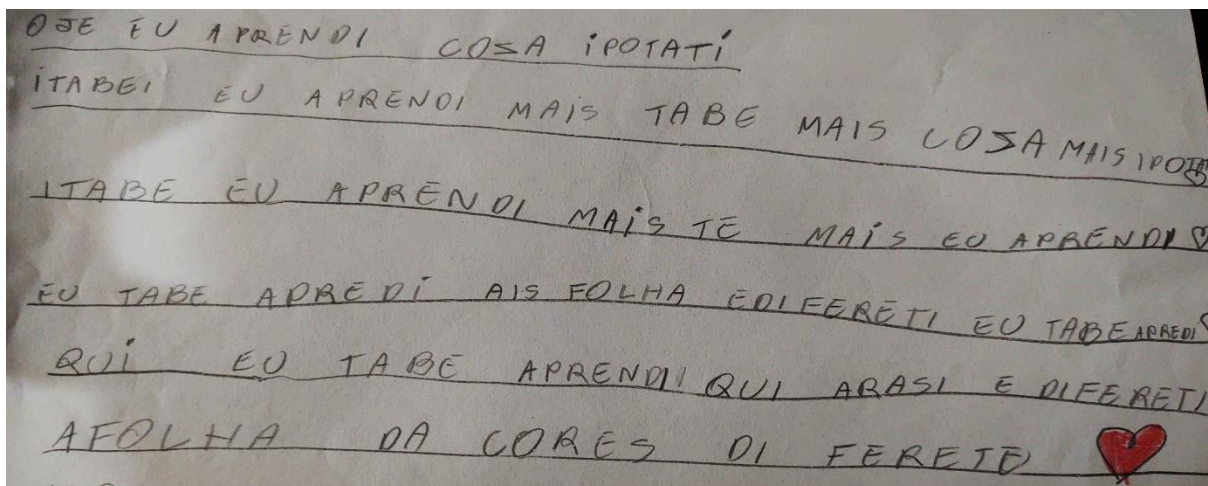 OJE EU APRENDI COSA IPOTATI
ITABEI EU APRENDI MAIS TABE MAIS COSA MAIS
ITABE EU APRENDI MAIS TE MAIS EU APRENDI
EU TABE APREDI AIS FOLHA EDIFERETI EU TABE APREDI
QUI EU TABE APRENDI QUI ARASI E DIFERETI
AFOLHA DA CORES DI FERETE